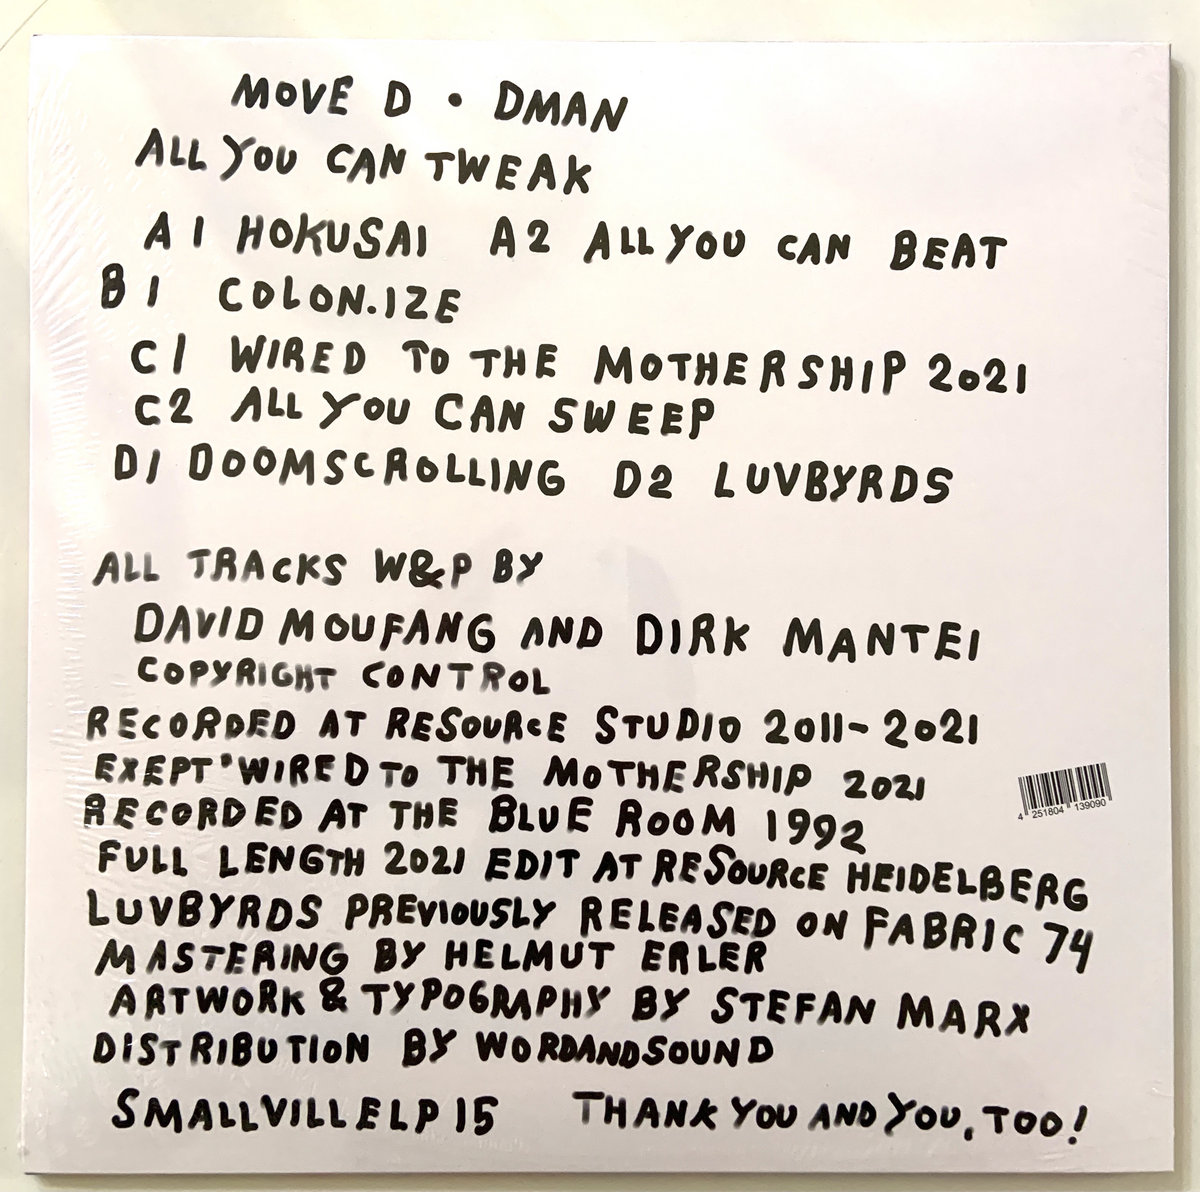 MOVE D • DMAN
ALL YOU CAN TWEAK
A1 HOKUSAI A2 ALL YOU CAN BEAT
B1 COLON.IZE
C1 WIRED TO THE MOTHERSHIP 2021
C2 ALL YOU CAN SWEEP
D1 DOOMSCROLLING D2 LUVBYRDS
ALL TRACKS W&P BY
DAVID MOUFANG AND DIRK MANTEI
COPYRIGHT CONTROL
RECORDED AT RESOURCE STUDIO 2011-2021
EXEPT 'WIRED TO THE MOTHERSHIP 2021
RECORDED AT THE BLUE ROOM 1992
FULL LENGTH 2021 EDIT AT RESOURCE HEIDELBERG
LUVBYRDS PREVIOUSLY RELEASED ON FABRIC 74
MASTERING BY HELMUT ERLER
ARTWORK & TYPOGRAPHY BY STEFAN MARX
DISTRIBUTION BY WORDANDSOUND
SMALLVILLELP15 THANK YOU AND YOU, TOO!
4 251804 139090